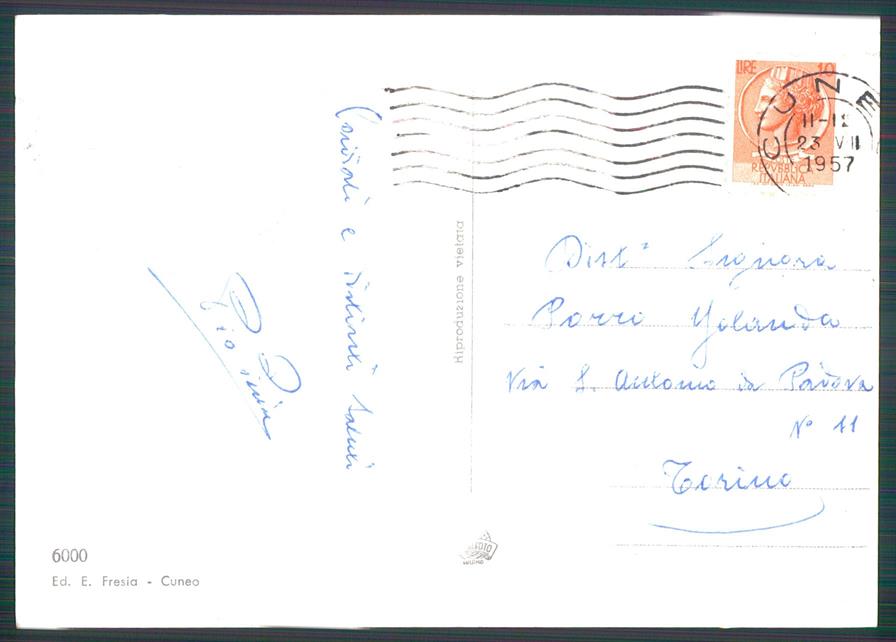 LIRE 10
REPVBBLICA
ITALIANA
CUNE
11-12
23 VII
1957
Cordiali e distinti saluti
Riproduzione vietata
Dist.ª Signora
Porro Yolanda
Via S. Antonio da Padova
N° 11
Torino
6000
Ed. E. Fresia - Cuneo